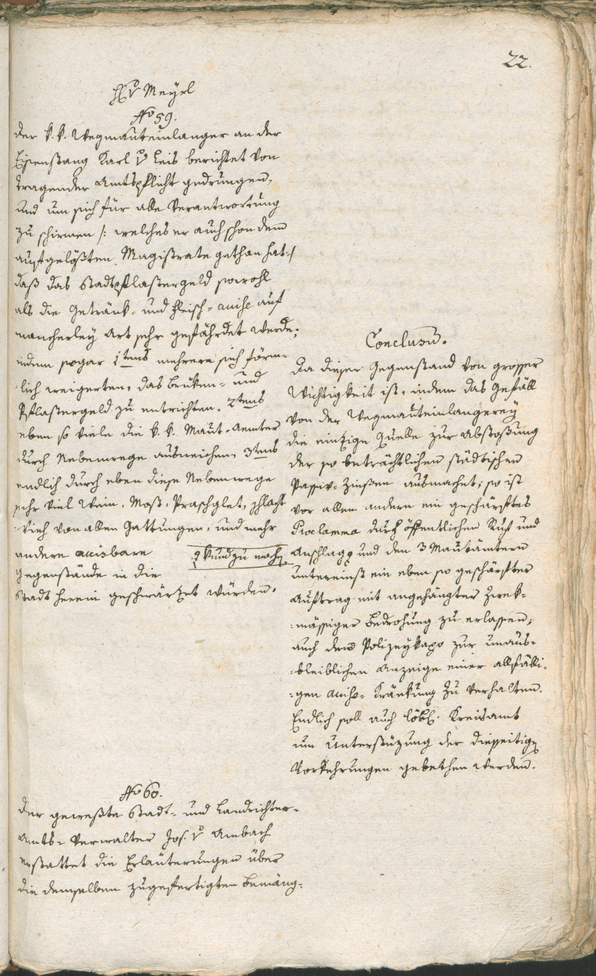 22.
H v Meyrl
No 59.
Der k. k. Wegmauteinlanger an der
Eisenstang Karl v Leis berichtet von
tragender Amtspflicht gedrungen,
und um sich für alle Verantwortung
zu schirmen /: welches er auch schon dem
aufgelößten Magistrate gethan hat :/
daß das Stadtpflastergeld sowohl
als die Getränk- und Fleisch-accise auf
mancherley Art sehr gefährdet werde;
indem sogar 1tens mehrere sich förm-
lich weigerten, das Brüken- und
Pflastergeld zu entrichten. 2tens
eben so viele die k. k. Maut-Aemter
durch Nebenwege ausweichen, 3tens
endlich durch eben diese Nebenwege
sehr viel Wein, Most, Praschglet, schlacht
-vieh von allen Gattungen, und mehr
andere accisbare
Gegenstände in die
Stadt herein geschwärzt würden.
Conclusum.
Da dieser Gegenstand von grosser
Wichtigkeit ist, indem das Gefäll
von der Wegmauteinlangerey
die einzige Quelle zur Abstoßung
der so beträchtlichen städtischen
Passiv-Zinßen ausmachet; so ist
vor allem andern ein geschärftes
Proclamma durch öffentlichen Ruf und
Anschlagg und den 3 Mautämtern
untereinst ein eben so geschärfter
Auftrag mit angehängter zwek-
-mässiger Bedrohung zu erlassen,
auch dem Polizeykapo zur unaus-
-bleiblichen Anzeige einer allfälli-
-gen accise-Kränkung zu verhalten.
Endlich soll auch löbl. Kreisamt
um Unterstüzung der dießeitigen
Vorkehrungen gebethen werden.
No 60.
Der geweßte Stadt- und Landrichter-
Amts-Verwalter Jos. v Ambach
erstattet die Erläuterungen über
die demselben zugefertigten Bemäng-